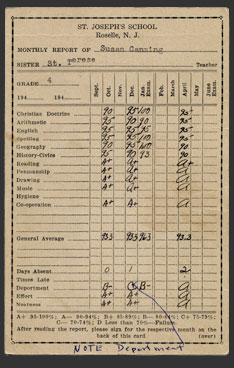 ST. JOSEPH'S SCHOOL
Roselle, N. J.
MONTHLY REPORT OF Susan Canning
SISTER St. Terese Teacher
GRADE 4
194 194
Sept. Oct. Nov. Dec. Jan. Exam. Feb. March April May June Exam.
Christian Doctrine 90 95 100 90
Arithmetic 90 90 90
English 95 95 95
Spelling 95 100
Geography 90 95 100 90
History-Civics 95 90 93 90
Reading A+ A+
Penmanship A+ A+
Drawing A+ A+
Music A+ A+
Hygiene
Co-operation A+ A+
General Average 93.3 93.5 96.3 93.3
Days Absent 0 1 2
Times Late
Department B- B-
Effort A+ A+
Neatness A+ A+
A+ 95-100%; A— 90-94%; B+ 85-89%; B— 80-84%; C+ 75-79%;
C— 70-74%; D Less than 70%—Failure.
After reading the report, please sign for the respective month on the
back of this card (over)
NOTE Department